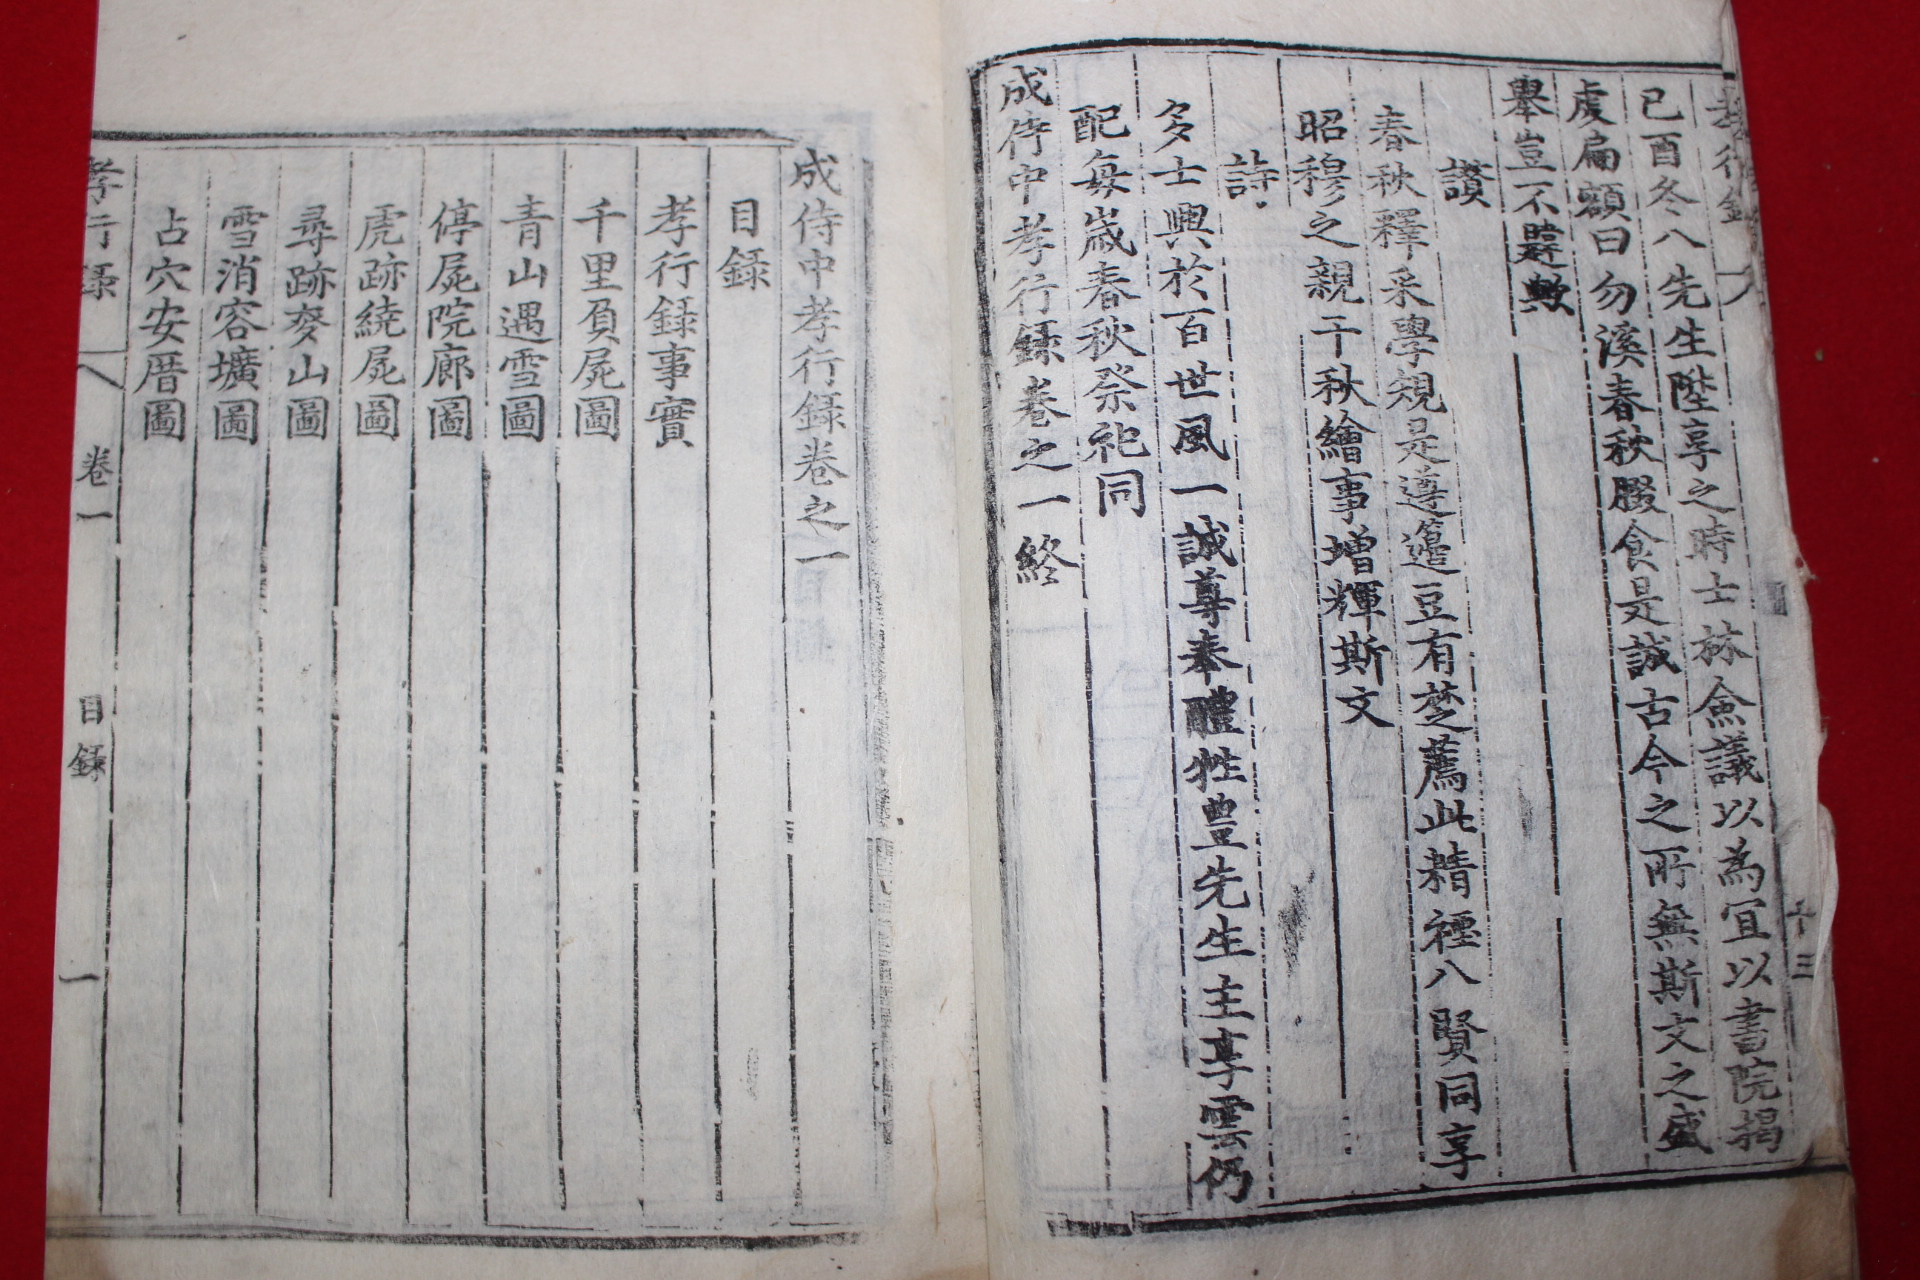 孝行錄
十三
己酉冬八先生陞享之時士林僉議以爲宜以書院揭
虔扁額曰勿溪春秋腏食是誠古今之所無斯文之盛
擧豈不韙歟
讚
春秋釋采學規是遵籩豆有楚薦此精禋八賢同享
昭穆之親千秋繪事增輝斯文
詩
多士興於百世風一誠尊奉醴牲豊先生主享雲仍
配每歲春秋祭祀同
成侍中孝行錄卷之一終
成侍中孝行錄卷之一
目錄
孝行錄事實
千里負屍圖
靑山遇雪圖
停屍院廊圖
虎跡繞屍圖
尋跡麥山圖
雪消容壙圖
占穴安厝圖
孝行錄 卷一 目錄 一